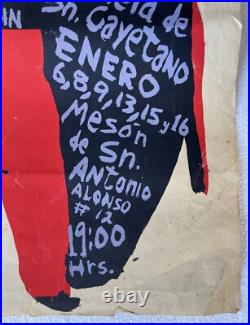 IN
de
Sn. Cayetano
ENERO
6,8,9,13,15,y 16
Mesón
de Sn.
ANTONIO
ALONSO
# 12
19:00
Hrs.
thsnews.com